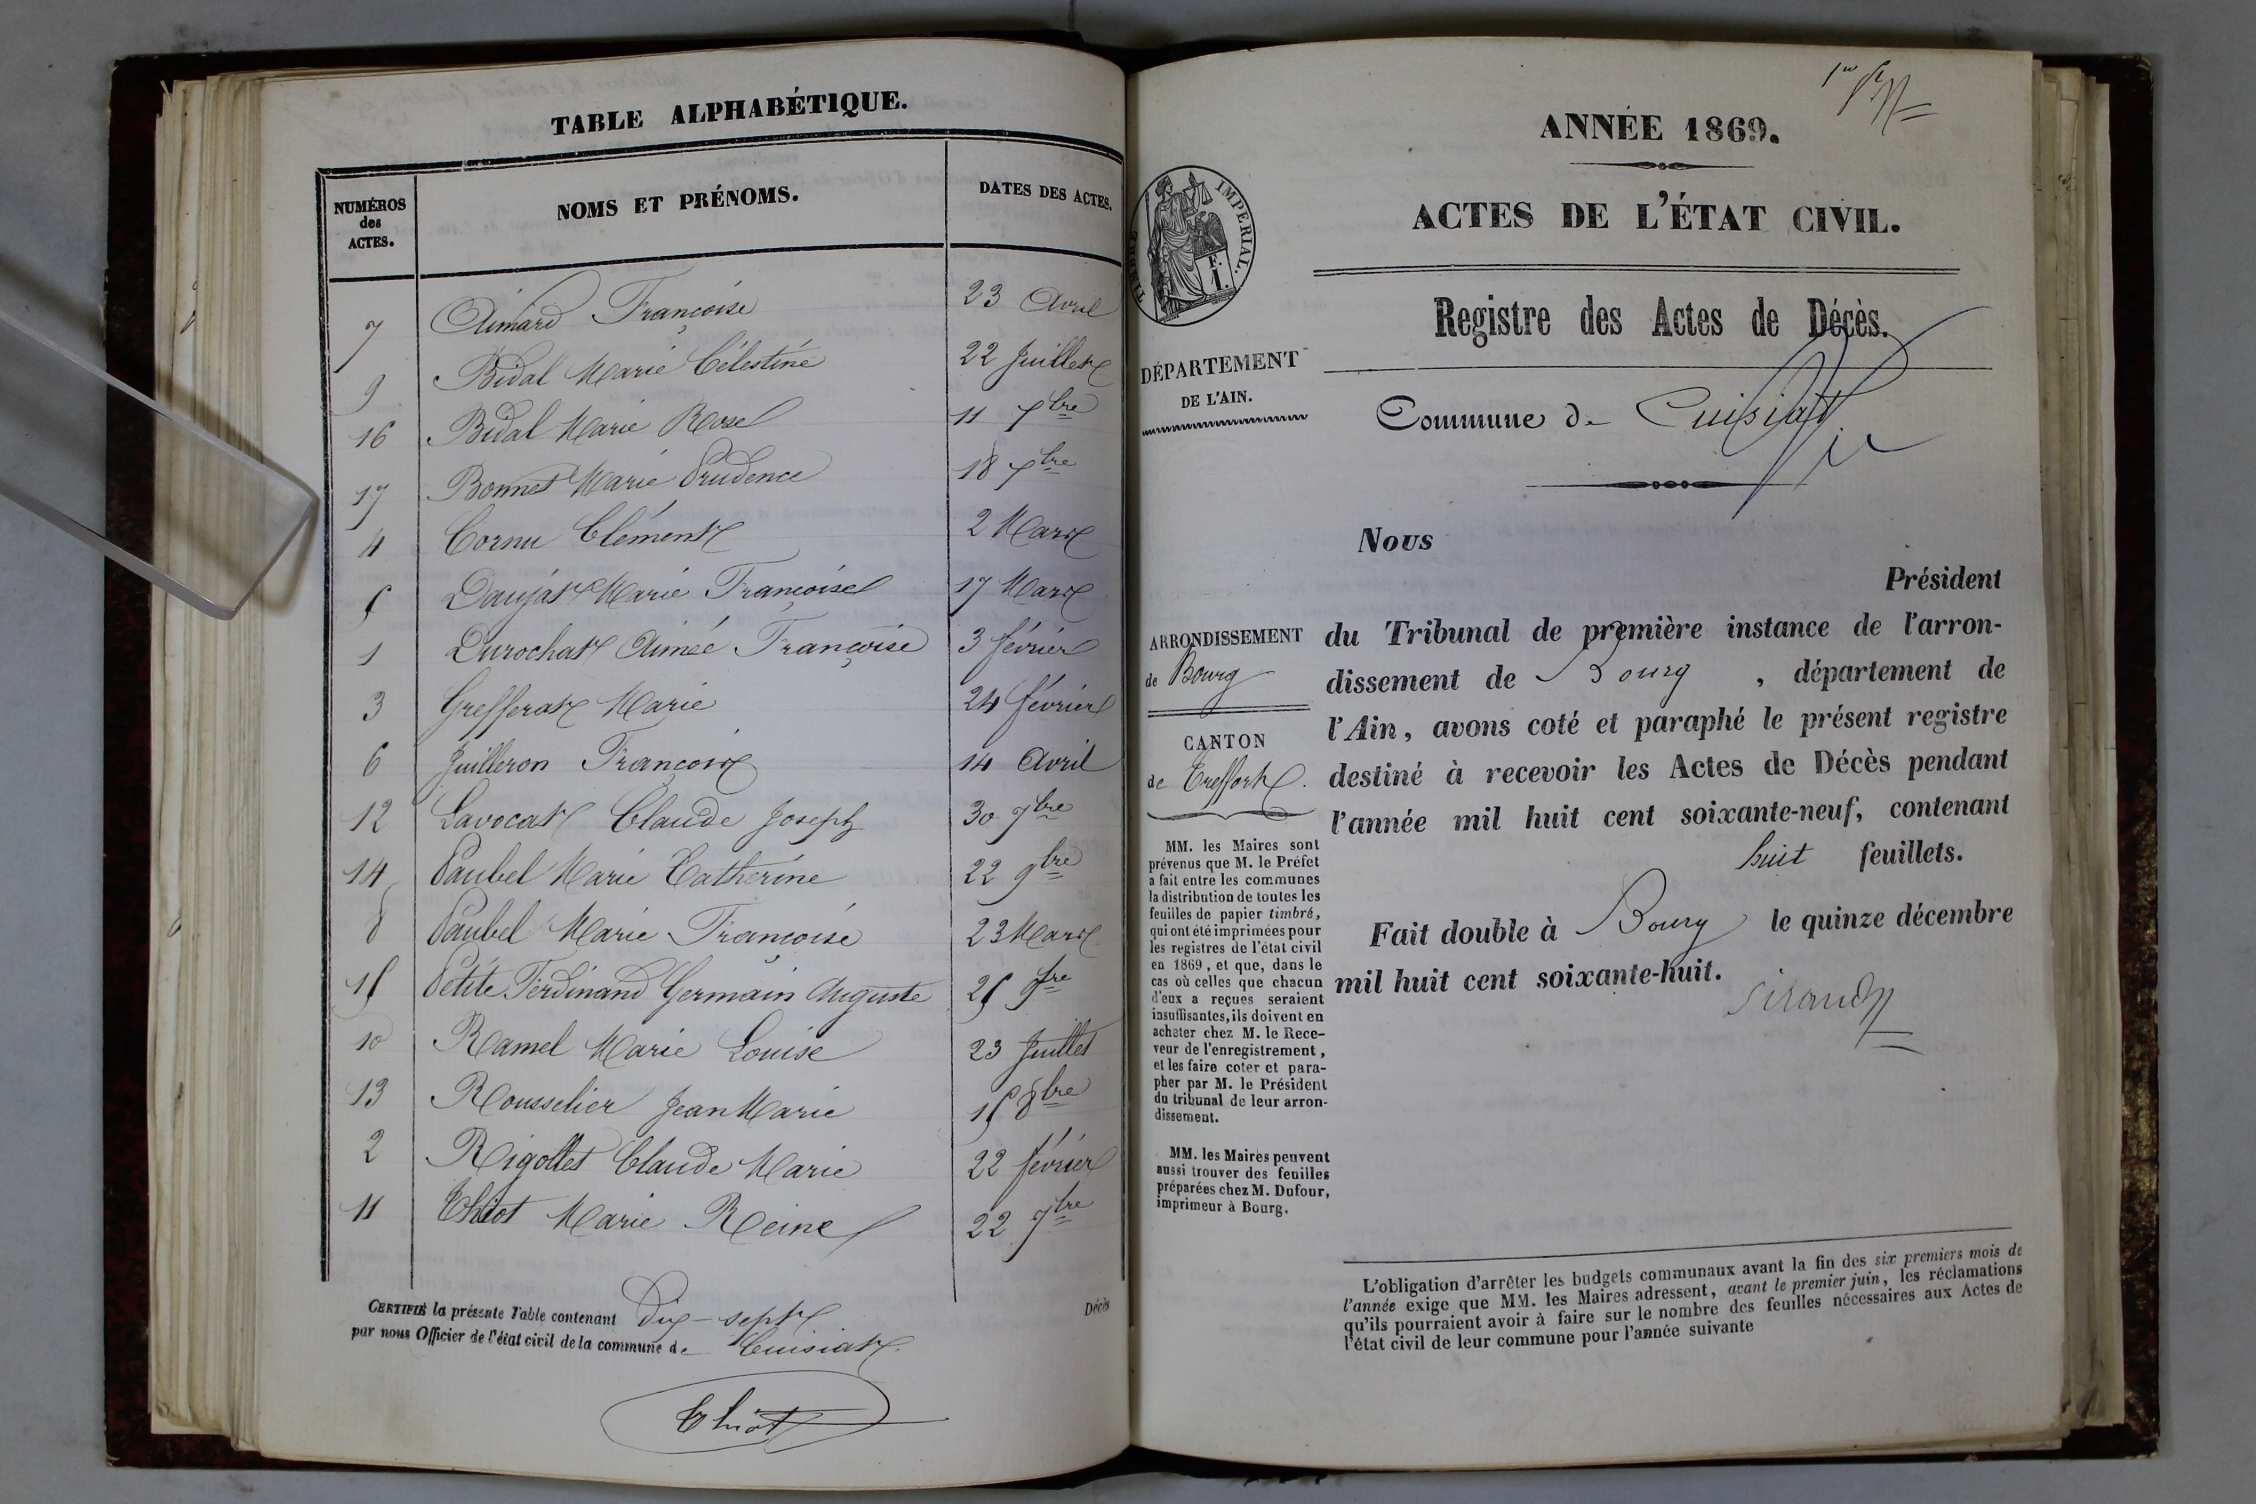 TABLE ALPHABÉTIQUE.
NUMÉROS des ACTES. NOMS ET PRÉNOMS. DATES DES ACTES.
7 Aimard Françoise 23 Avril
9 Bidal Marie Célestine 22 Juillet
16 Bidal Marie Rose 11 Xbre
17 Bonnet Marie Prudence 18 Xbre
4 Cornu Clément 2 Mars
5 Daujat Marie Françoise 17 Mars
1 Durochat Aimée Françoise 3 février
3 Grefferat Marie 24 février
6 Juilleron François 14 Avril
12 Lavocat Claude Joseph 30 7bre
14 Paubel Marie Catherine 22 9bre
8 Paubel Marie Françoise 23 Mars
15 Petite Ferdinand Germain Auguste 25 9bre
10 Ramel Marie Louise 23 Juillet
13 Rousselier Jean Marie 15 8bre
2 Rigollet Claude Marie 22 février
11 Thiot Marie Reine 22 7bre
Décès
CERTIFIÉ la présente Table contenant Dix-sept
par nous Officier de l'état civil de la commune de Cuisiat.
Thiot
ANNÉE 1869.
ACTES DE L'ÉTAT CIVIL.
TIMBRE IMPERIAL.
1 F.
Registre des Actes de Décès.
DÉPARTEMENT
DE L'AIN.
Commune de Cuisiat
ARRONDISSEMENT
de Bourg
CANTON
de Treffort.
MM. les Maires sont
prévenus que M. le Préfet
a fait entre les communes
la distribution de toutes les
feuilles de papier timbré,
qui ont été imprimées pour
les registres de l'état civil
en 1869, et que, dans le
cas où celles que chacun
d'eux a reçues seraient
insuffisantes, ils doivent en
acheter chez M. le Rece-
veur de l'enregistrement,
et les faire coter et para-
pher par M. le Président
du tribunal de leur arron-
dissement.
MM. les Maires peuvent
aussi trouver des feuilles
préparées chez M. Dufour,
imprimeur à Bourg.
Nous
Président
du Tribunal de première instance de l'arron-
dissement de Bourg, département de
l'Ain, avons coté et paraphé le présent registre
destiné à recevoir les Actes de Décès pendant
l'année mil huit cent soixante-neuf, contenant
huit feuillets.
Fait double à Bourg le quinze décembre
mil huit cent soixante-huit.
L'obligation d'arrêter les budgets communaux avant la fin des six premiers mois de
l'année exige que MM. les Maires adressent, avant le premier juin, les réclamations
qu'ils pourraient avoir à faire sur le nombre des feuilles nécessaires aux Actes de
l'état civil de leur commune pour l'année suivante